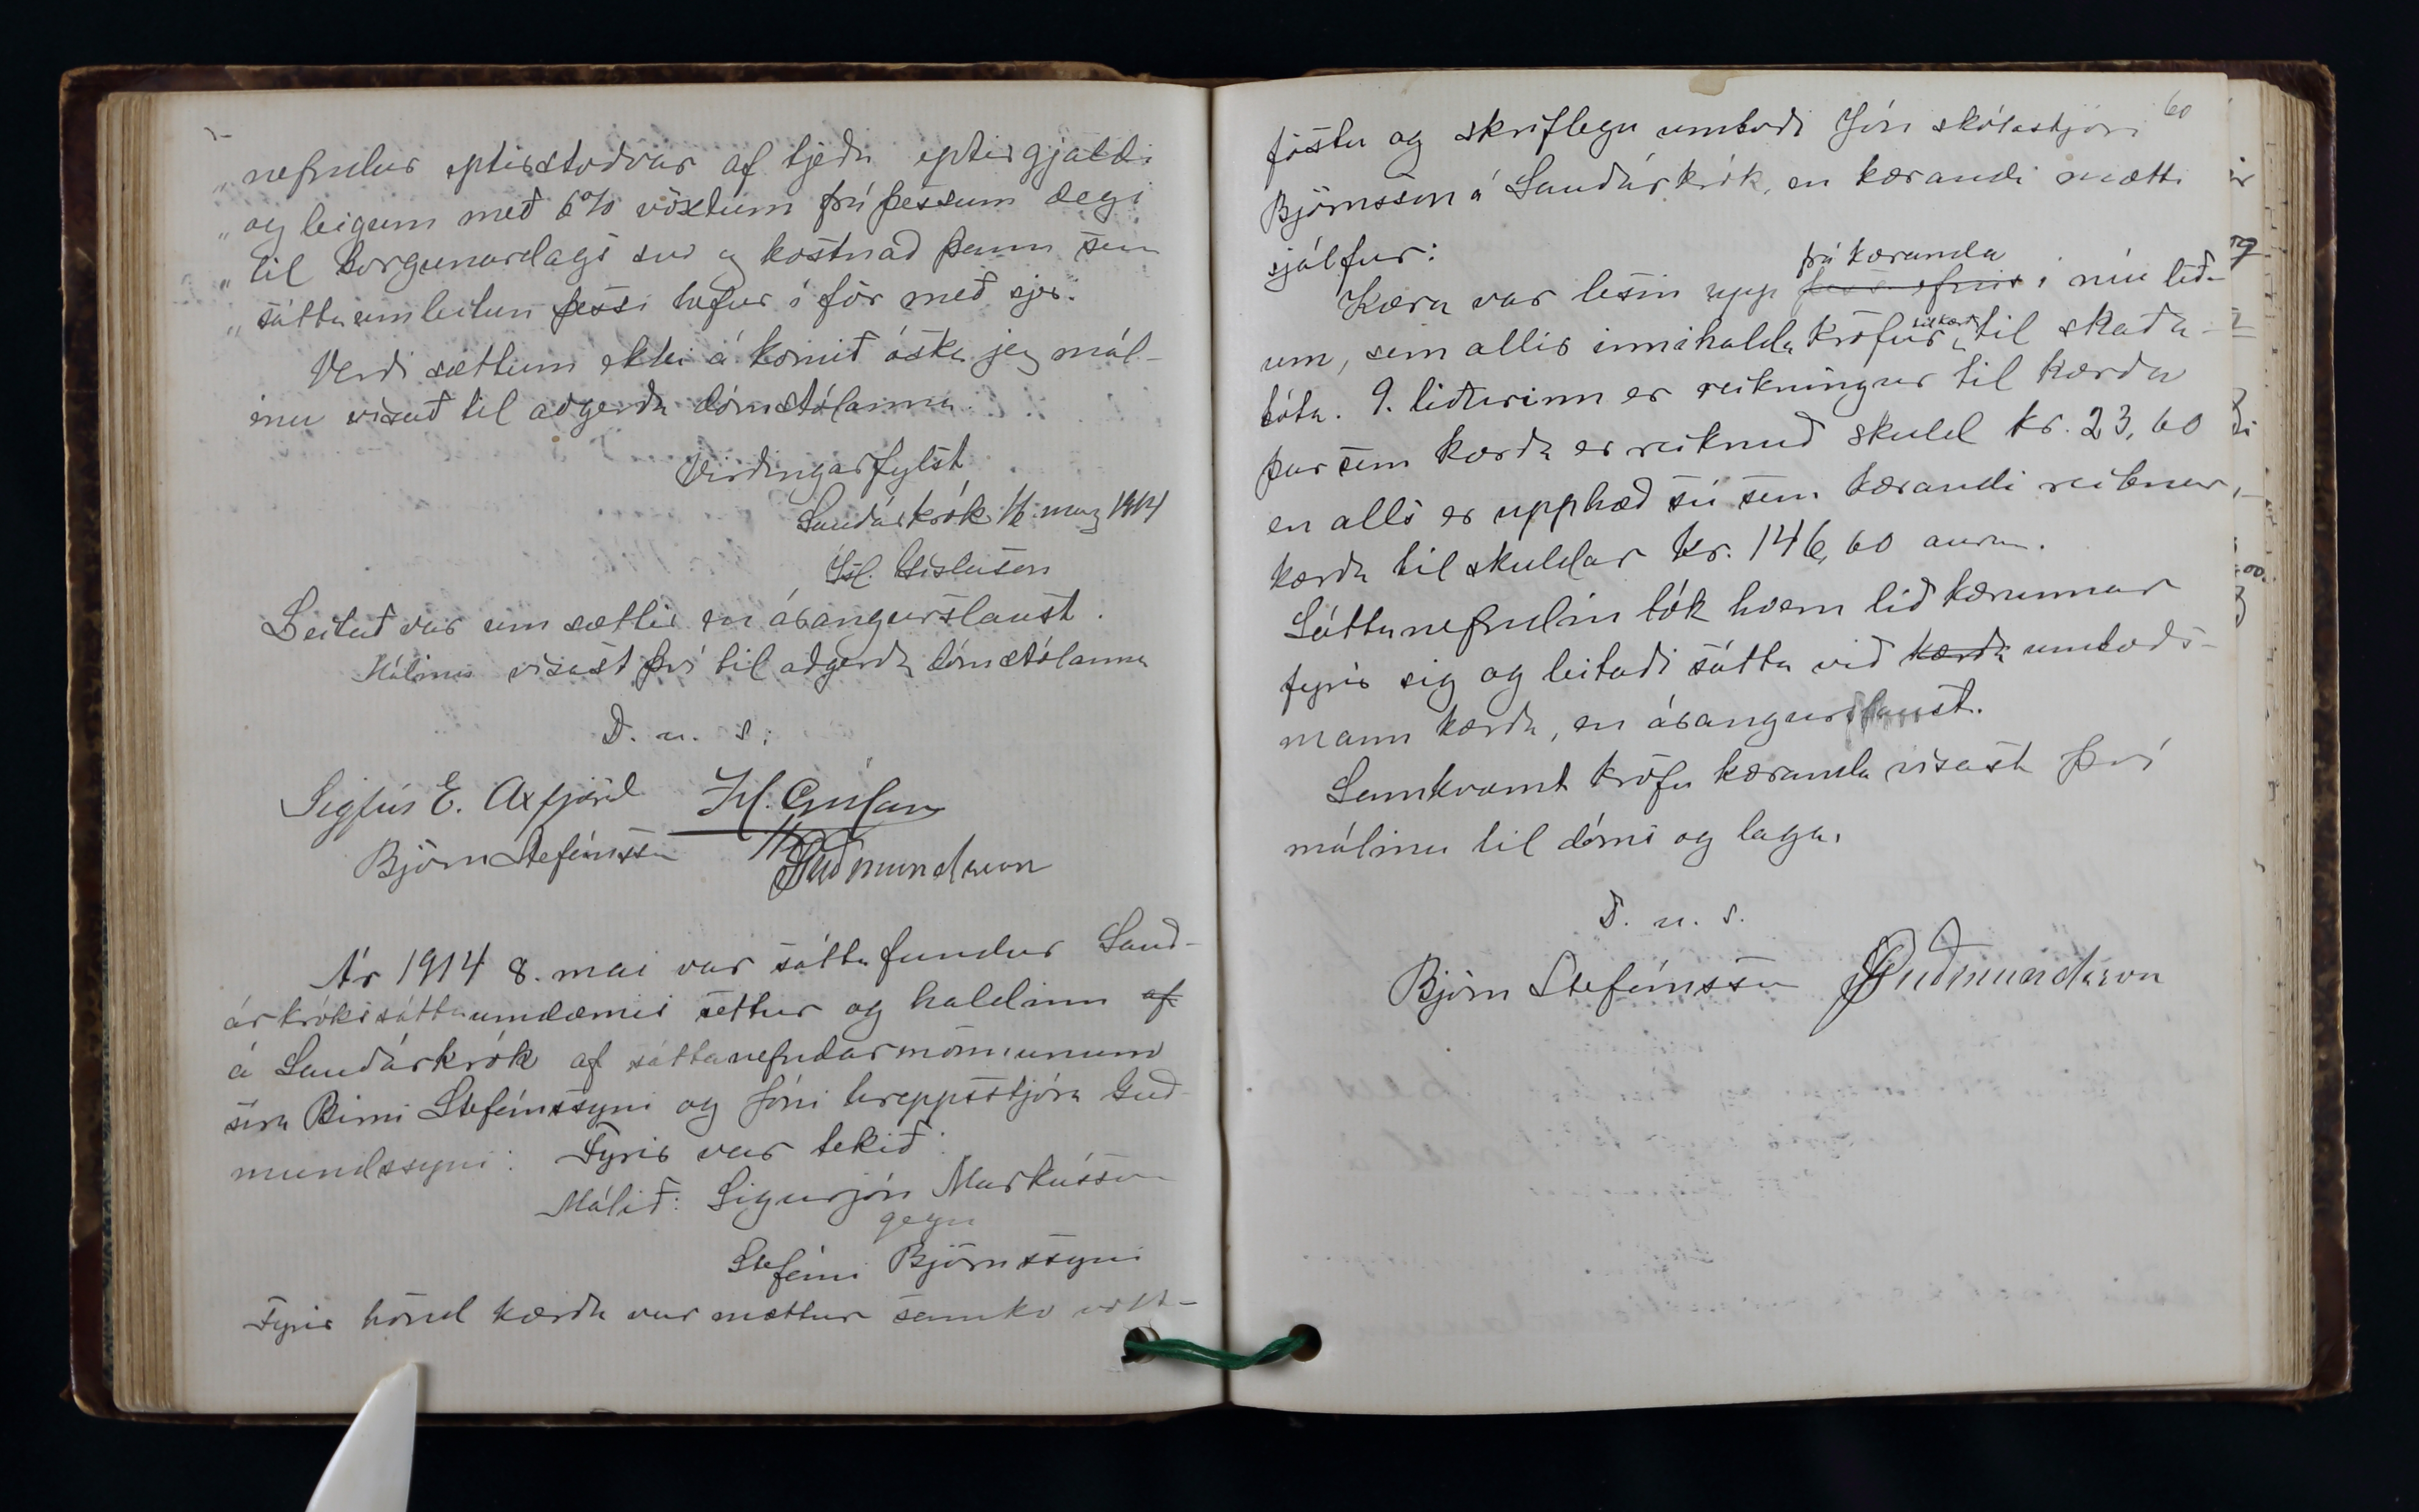 „nefndar eptirstöðvar af tjeðu eptirgjaldi
„og leigum með 6% vöxtum frá þessum degi
„til borgunardags svo og kostnað þann sem
„sáttaumleitun þessi hefur í för með sjer.
Verði sættum ekki á komið óska jeg mál-
inu vísað til aðgerða dómstólanna.
Virðingarfylst
Sauðárkrók 1/6 marz 1914
Ísl. Gíslason
Leitað var um sættir en árangurslaust.
Málinu vísast því til aðgerða dómstólanna
D. u. s.
Sigfús E. Axfjörd Ísl. Gíslason
Björn Stefánsson JGuðmundsson
Ár 1914 8. mai var sáttafundur Sauð-
árkrókssáttaumdæmis settur og haldinn af
á Sauðárkrók af sáttanefndarmönnunum
síra Birni Stefánssyni og Jóni hreppsstjóra Guð-
mundssyni: Fyrir var tekið:
Málið: Sigurjón Markússon
gegn
Stefáni Björnssyni
Fyrir hönd kærða var mættur samkv
60
föstu og skriflegu umboði Jón skólastjóri
Björnsson á Sauðárkrók, en kærandi mætti
sjálfur:
frá kæranda
Kæra var lesin upp þess efnis í níu lið-
um, sem allir innihalda kröfur til kærða til skaða-
bóta. 9. liðurinn er reikningur til kærða
þar sem kærða er reiknuð skuld kr. 23,60
en alls er upphæð sú sem kærandi reiknar
kærða til skuldar kr. 146,60 aura.
Sáttanefndin tók hvern lið kærunnar
fyrir sig og leitaði sátta við kærða umboðs-
mann kærða, en árangurslaust.
Samkvæmt kröfu kæranda vísast því
málinu til dóms og laga.
D. u. s.
Björn Stefánsson JGuðmundsson